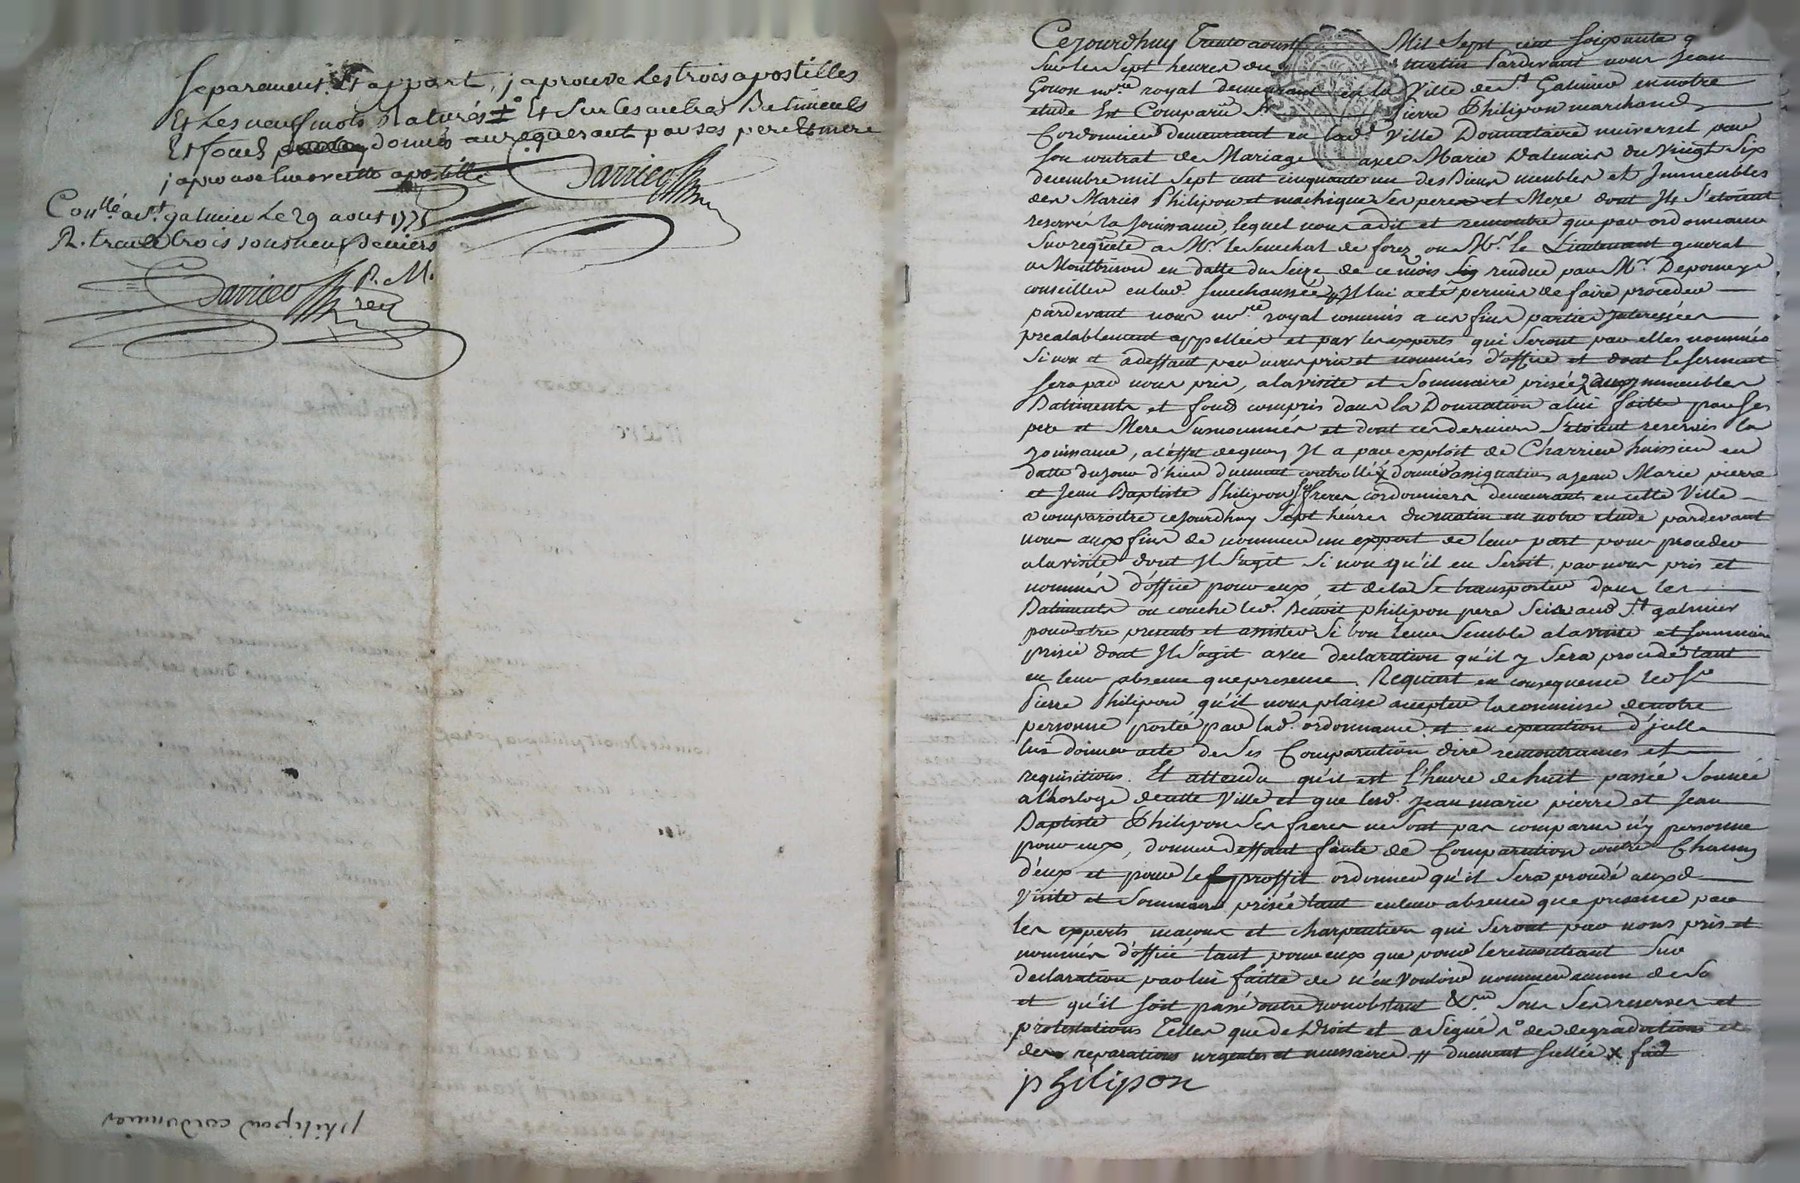 separement Et appart, japrouve Les trois apostilles
Et Les neuf mots raturés Et sur Les autres Batiments
Et fonds donnés au requerant par ses pere Et mere
japrouve encore cette apostille
Darrieu
Con.llé a S.t galmier Le 29 aout 1775
R. traize trois sous neuf Deniers
Darrieu
philipon cordonnier
Cejourdhuy trente aoust Mil Sept cent soixante
Sur les Sept heures du matin Pardevant nous Jean
Gonon no.re royal demeurant en la Ville de S.t Galmier en notre
etude Est Comparu S.r Pierre Philipon marchand
Cordonnier demeurant en lad.e Ville Donnataire universel par
son contrat de Mariage avec Marie du Vingt Six
decembre mil Sept cent cinquante un des Biens meubles et Immeubles
des Mariés Philipon et machique Ses pere et Mere dont Ils S'etoient
reservé la Jouissance, lequel nous a dit et remontre que par ordonnance
Sur requête a M.r le Senechal de forez ou M.r le Lieutenant general
a Montbrison en datte du Seize de ce mois rendue par M.r Depommey
conseiller en lad. Senechaussée Il lui a eté permis de faire proceder
pardevant nous no.re royal commis a ces fins parties Interessées
prealablement appellées et par les experts qui Seront par elles nommés
Si non et a deffaut par nous pris et nommés d'office et dont le Serment
Sera par nous pris, a la visite et Sommaire prisée des Immeubles
Batiments et fonds compris dans la Donnation a lui faitte par Ses
pere et Mere Susnommés et dont ces derniers S'etoient reservés la
Jouissance, a l'effet de quoy Il a par exploit de Charrier huissier en
datte du jour d'hier duement controllé donné assignation a Jean Marie pierre
et Jean Baptiste Philipon Ses freres cordonniers demeurants en cette Ville
a comparoitre cejourdhuy Sept heures du matin en notre etude pardevant
nous aux fins de nommer un expert de leur part pour proceder
a la visite dont Il S'agit Si non qu'il en Seroit par nous pris et
nommés d'office pour eux, et de la Se transporter dans les
Batiments ou couche led. Benoit philipon pere Scis aud. S.t galmier
pour etre presents et assister Si bon leur Semble a la visite et Sommaire
prisée dont Il S'agit avec declaration qu'il y Sera procedé tant
en leur absence que presence. Requiert en consequence led S.r
Pierre Philipon qu'il nous plaise accepter la commise de notre
personne portée par lad. ordonnance et en execution d'icelle
lui donner acte de Ses Comparution dire remontrances et
requisitions. Et attendu qu'il est l'heure de huit passée Sonnée
a l'horloge de cette Ville et que lesd. Jean marie pierre et Jean
Baptiste Philipon Ses freres ne Sont pas comparus ny personne
pour eux, donner deffaut faute de Comparution contre Chacun
d'eux et pour le proffit ordonner qu'il Sera procedé auxd
Visite et Sommaire prisée tant en leur absence que presence par
les experts maçons et charpentier qui Seront par nous pris et
nommés d'office tant pour eux que pour le remontrant Sur
declaration par lui faitte de n'en vouloir nommer aucun de Sa
et qu'il Soit passé outre nonobstant &.a Sous Ses reserves et
protestations Telles que de Droit et a Signé des degradations et
des reparations urgentes et necessaires duement Sellée fait
philipon